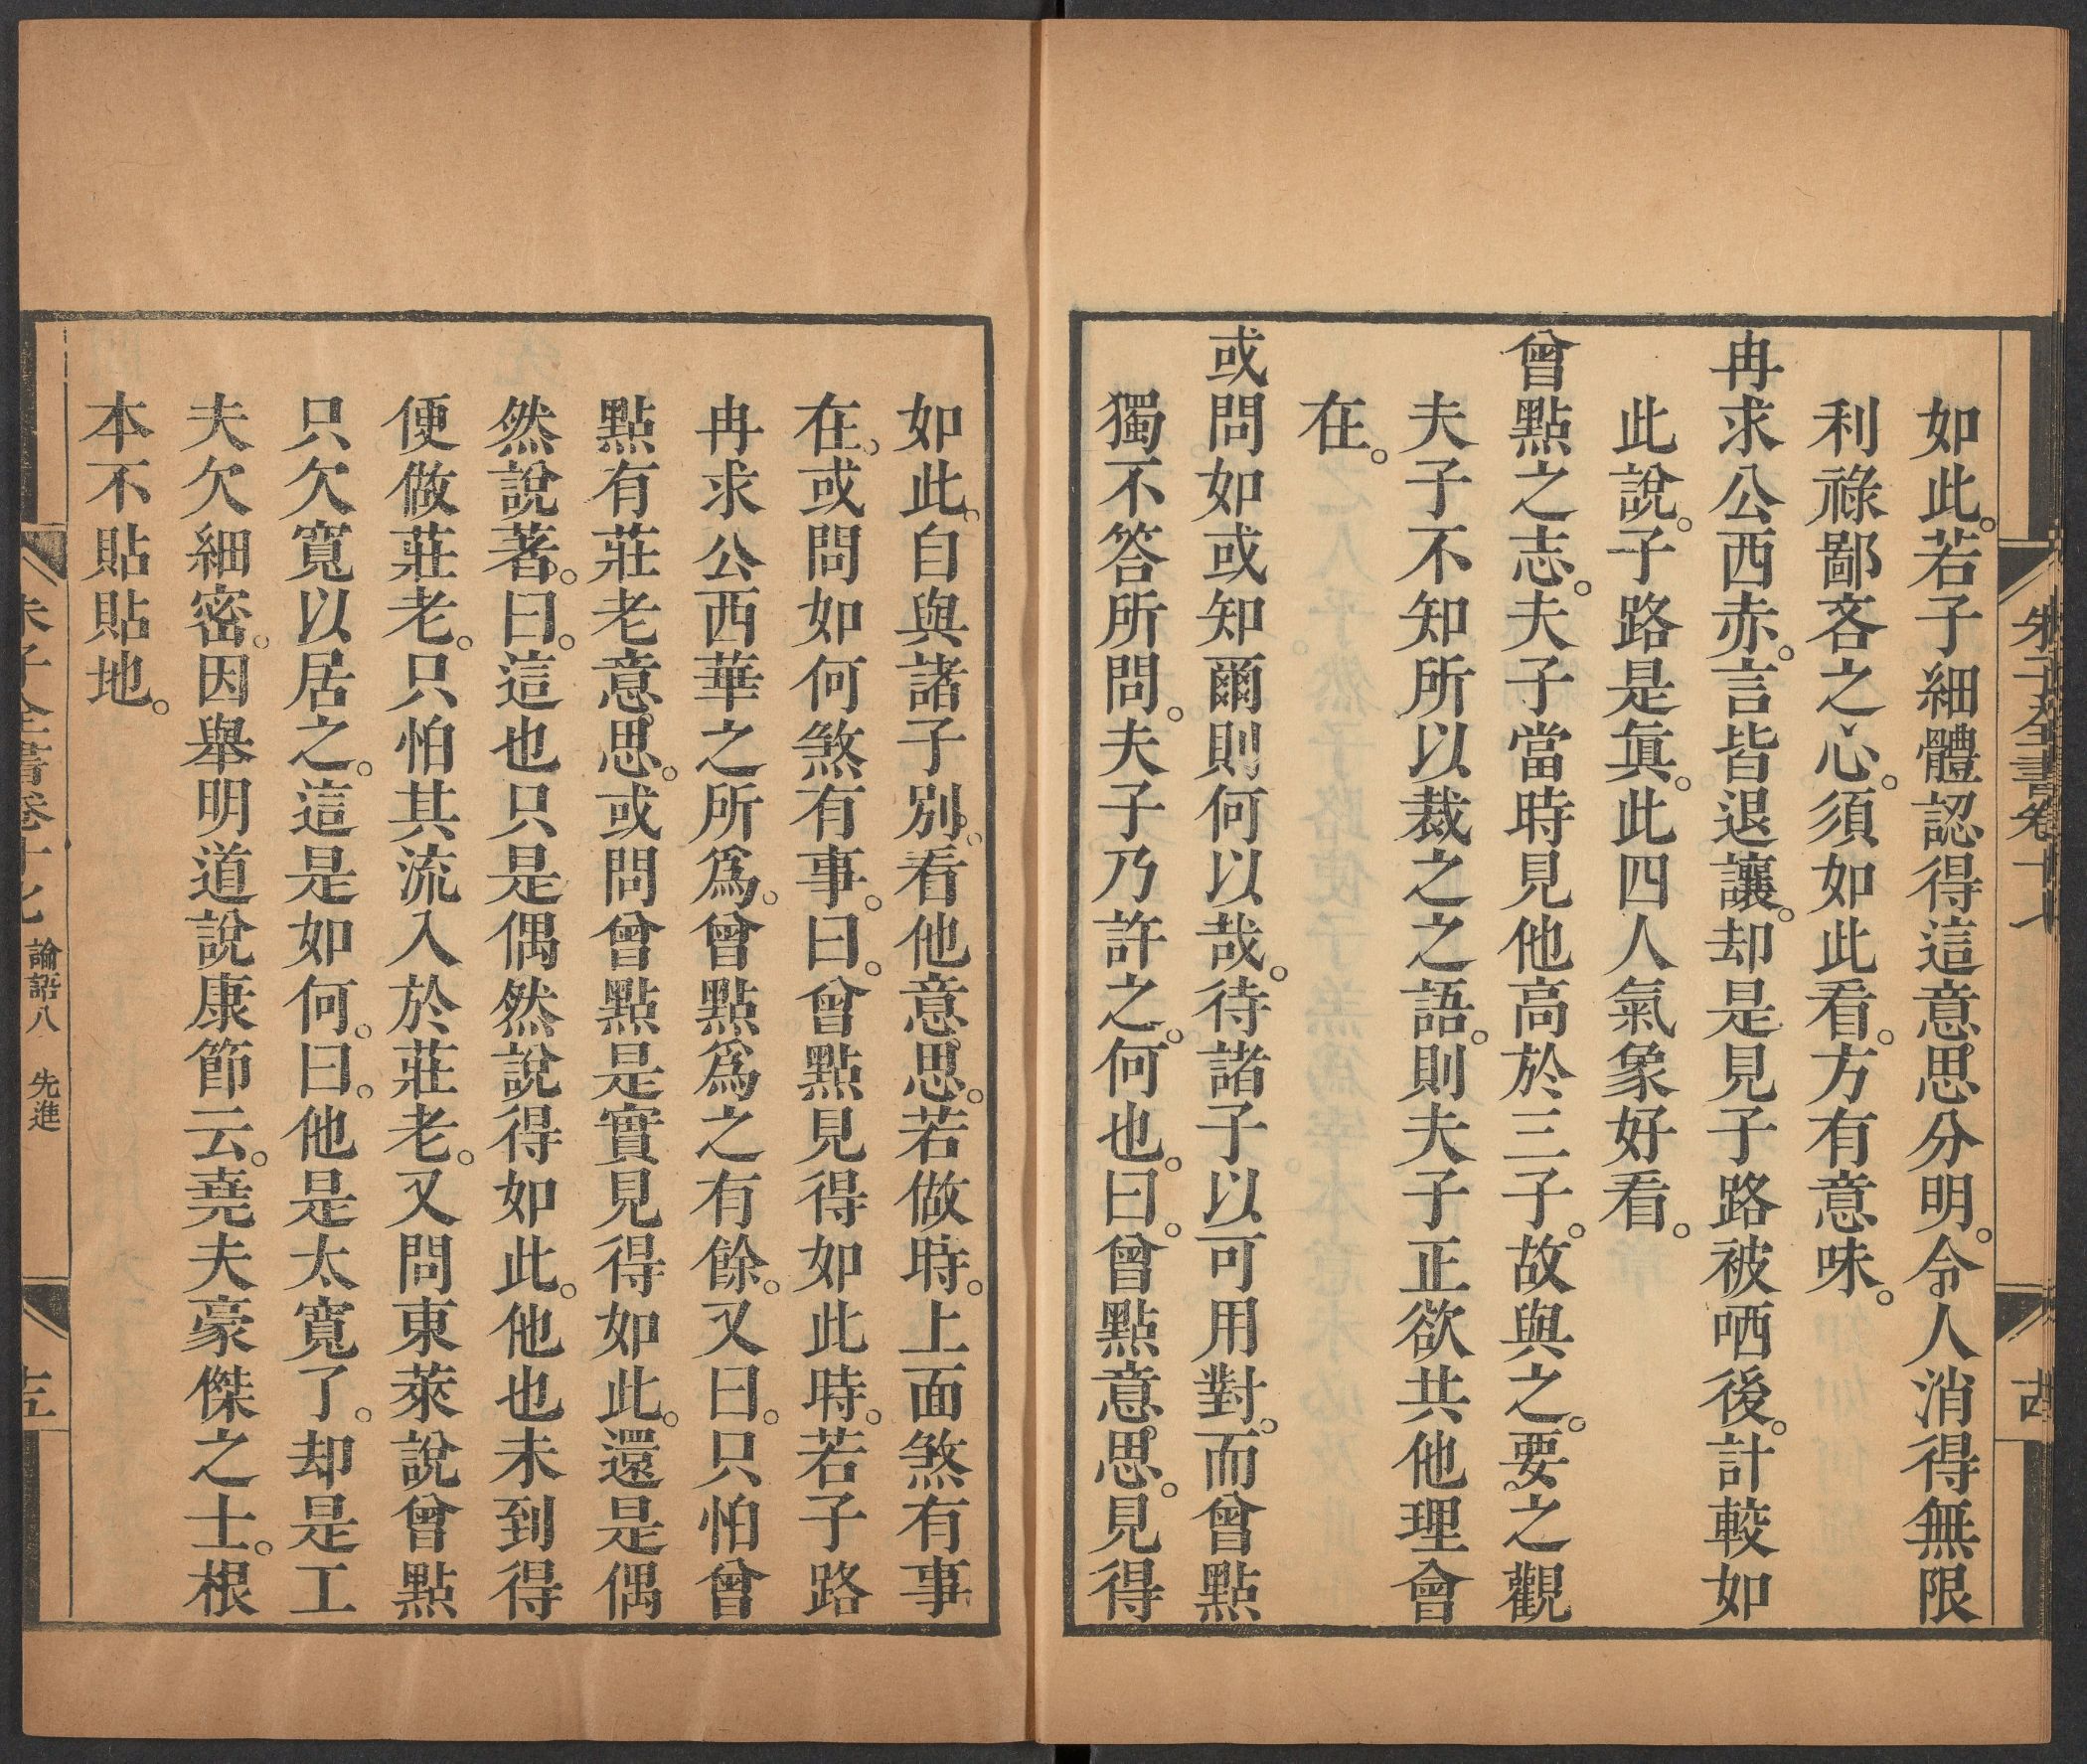 朱子全書卷十七
如此。若子細體認得這意思分明。令人消得無限
利祿鄙吝之心。須如此看。方有意味。
冉求公西赤。言皆退讓。却是見子路被哂後。計較如
此說。子路是真。此四人氣象好看。
曾點之志。夫子當時見他高於三子。故與之。要之觀
夫子不知所以裁之之語。則夫子正欲共他理會
在。
或問如或知爾則何以哉。待諸子以可用對。而曾點
獨不答所問。夫子乃許之。何也。曰。曾點意思。見得
如此。自與諸子別。看他意思。若做時。上面煞有事
在。或問如何煞有事。曰。曾點見得如此時。若子路
冉求公西華之所爲。曾點爲之有餘。又曰。只怕曾
點有莊老意思。或問曾點是實見得如此。還是偶
然說著。曰。這也只是偶然說得如此。他也未到得
便做莊老。只怕其流入於莊老。又問東萊說曾點
只欠寬以居之。這是如何。曰。他是太寬了。却是工
夫欠細密。因舉明道說康節云。堯夫豪傑之士。根
本不貼貼地。
朱子全書卷十七 論語八 先進